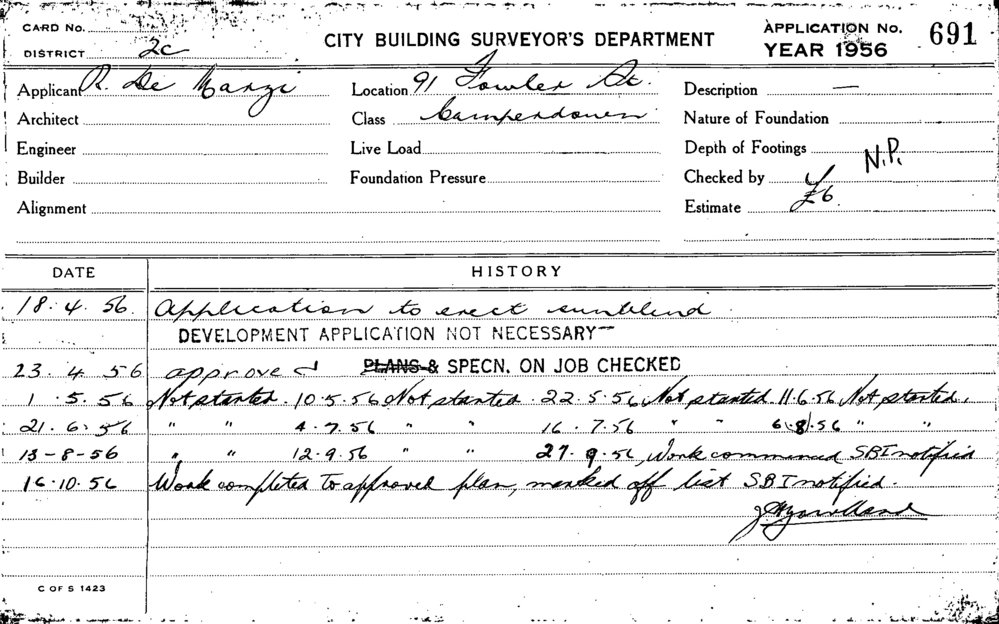 CARD No.
DISTRICT 2c
CITY BUILDING SURVEYOR'S DEPARTMENT
APPLICATION No. 691
YEAR 1956
Applicant R. De Manzi
Location 91 Fowler St.
Description —
Architect
Class Camperdown
Nature of Foundation
Engineer
Live Load
Depth of Footings
N.P.
Builder
Foundation Pressure
Checked by
Alignment
Estimate £6.
DATE HISTORY
18.4.56. Application to erect sunblind.
DEVELOPMENT APPLICATION NOT NECESSARY
23.4.56 approved PLANS & SPECN. ON JOB CHECKED
1.5.56 Not started. 10.5.56 Not started. 22.5.56, Not started. 11.6.56 Not started.
21.6.56 " " 4.7.56 " " 16.7.56 " " 6.8.56 " "
13-8-56 " " 12.9.56 " " 27.9.56, Work commenced SBI notified
16.10.56 Work completed to approved plan, marked off list SBI notified.
C OF S 1423